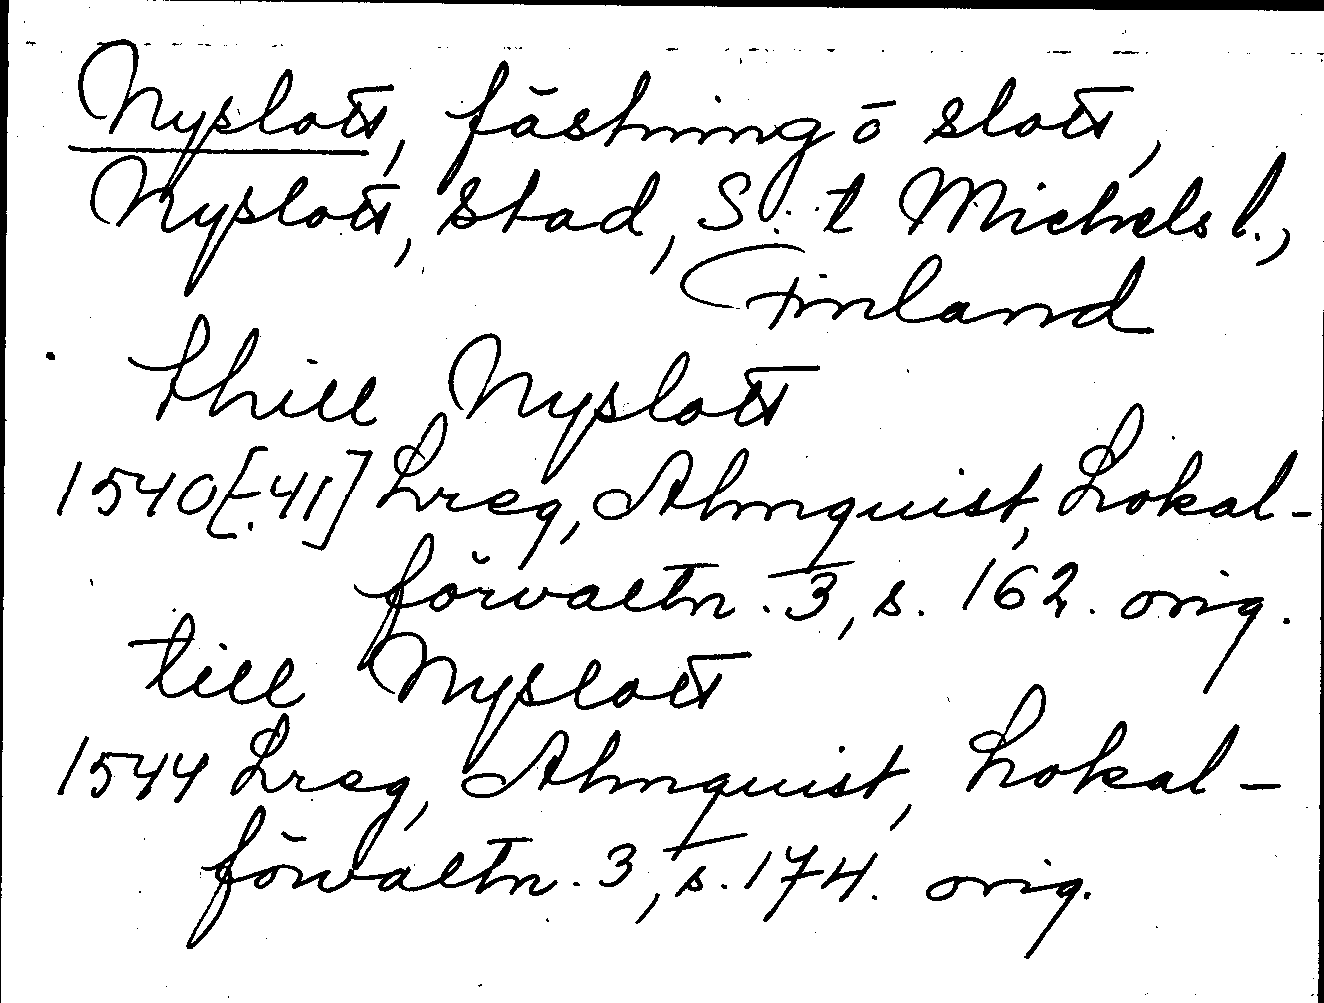 Nyslott, fästning o slott,
Nyslott, stad, S:t Michels l.,
Finland
thill Nyslott
1540[-41] Lreg, Almquist, Lokal-
förvaltn. 3, s. 162. orig.
till Nyslott
1544 Lreg, Almquist, Lokal-
förvaltn. 3, s. 174. orig.